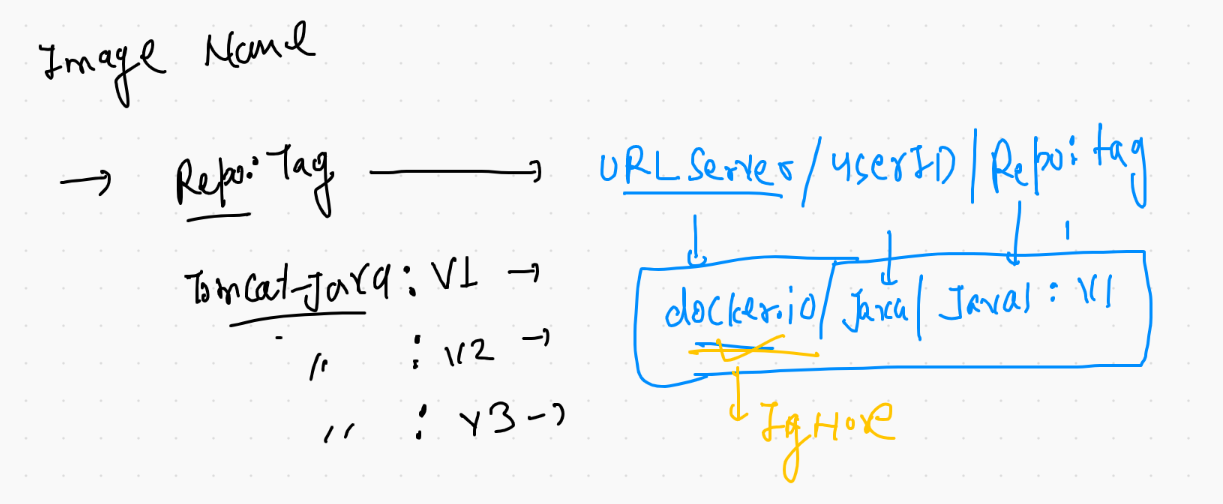 Image Name
→ Repo:Tag → URL Server/userID/Repo:tag
Tomcat-Java:V1 →
" :V2 →
" :V3 →
docker.io/Java/Java1:V1
Ignore